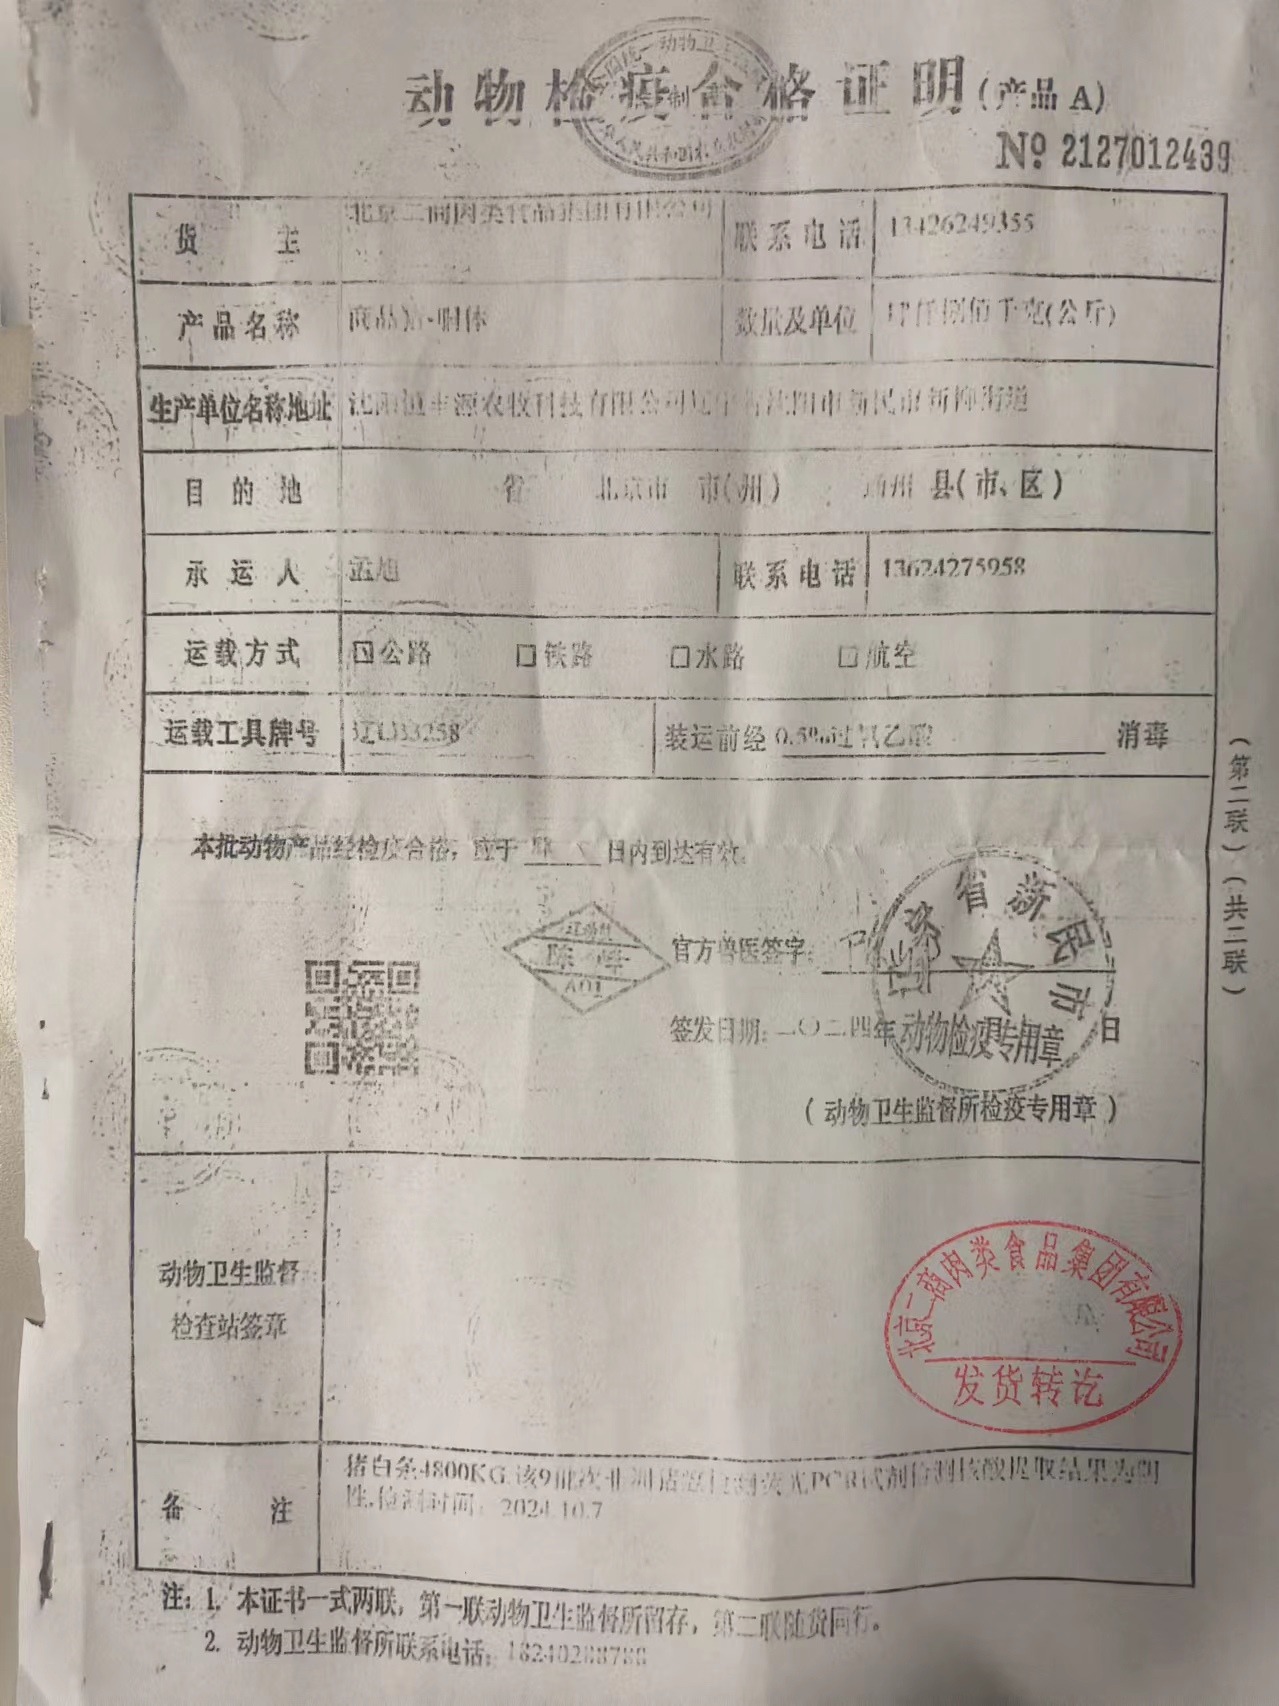 动物检疫合格证明(产品A)
№ 2127012439
货主 北京二商肉类食品集团有限公司 联系电话 13426249355
产品名称 商品猪-胴体 数量及单位 肆仟捌佰千克(公斤)
生产单位名称地址 沈阳恒丰源农牧科技有限公司辽宁省沈阳市新民市新柳街道
目的地 省 北京市 市(州) 通州 县(市、区)
承运人 孟旭 联系电话 13624275958
运载方式 ☑公路 □铁路 □水路 □航空
运载工具牌号 装运前经 0.5%过氧乙酸 消毒
本批动物产品经检疫合格, 应于 日内到达有效。
陈
A01
官方兽医签字:
签发日期: 二〇二四年 月 日
辽宁省新民市
动物检疫专用章
(动物卫生监督所检疫专用章)
动物卫生监督
检查站签章
北京二商肉类食品集团有限公司
发货转讫
备注 猪白条4800KG.该9批次非洲猪瘟检测荧光PCR试剂检测核酸提取结果为阴
性.检测时间: 2024.10.7
注: 1. 本证书一式两联, 第一联动物卫生监督所留存, 第二联随货同行。
2. 动物卫生监督所联系电话: 18240288788
(第二联)(共二联)